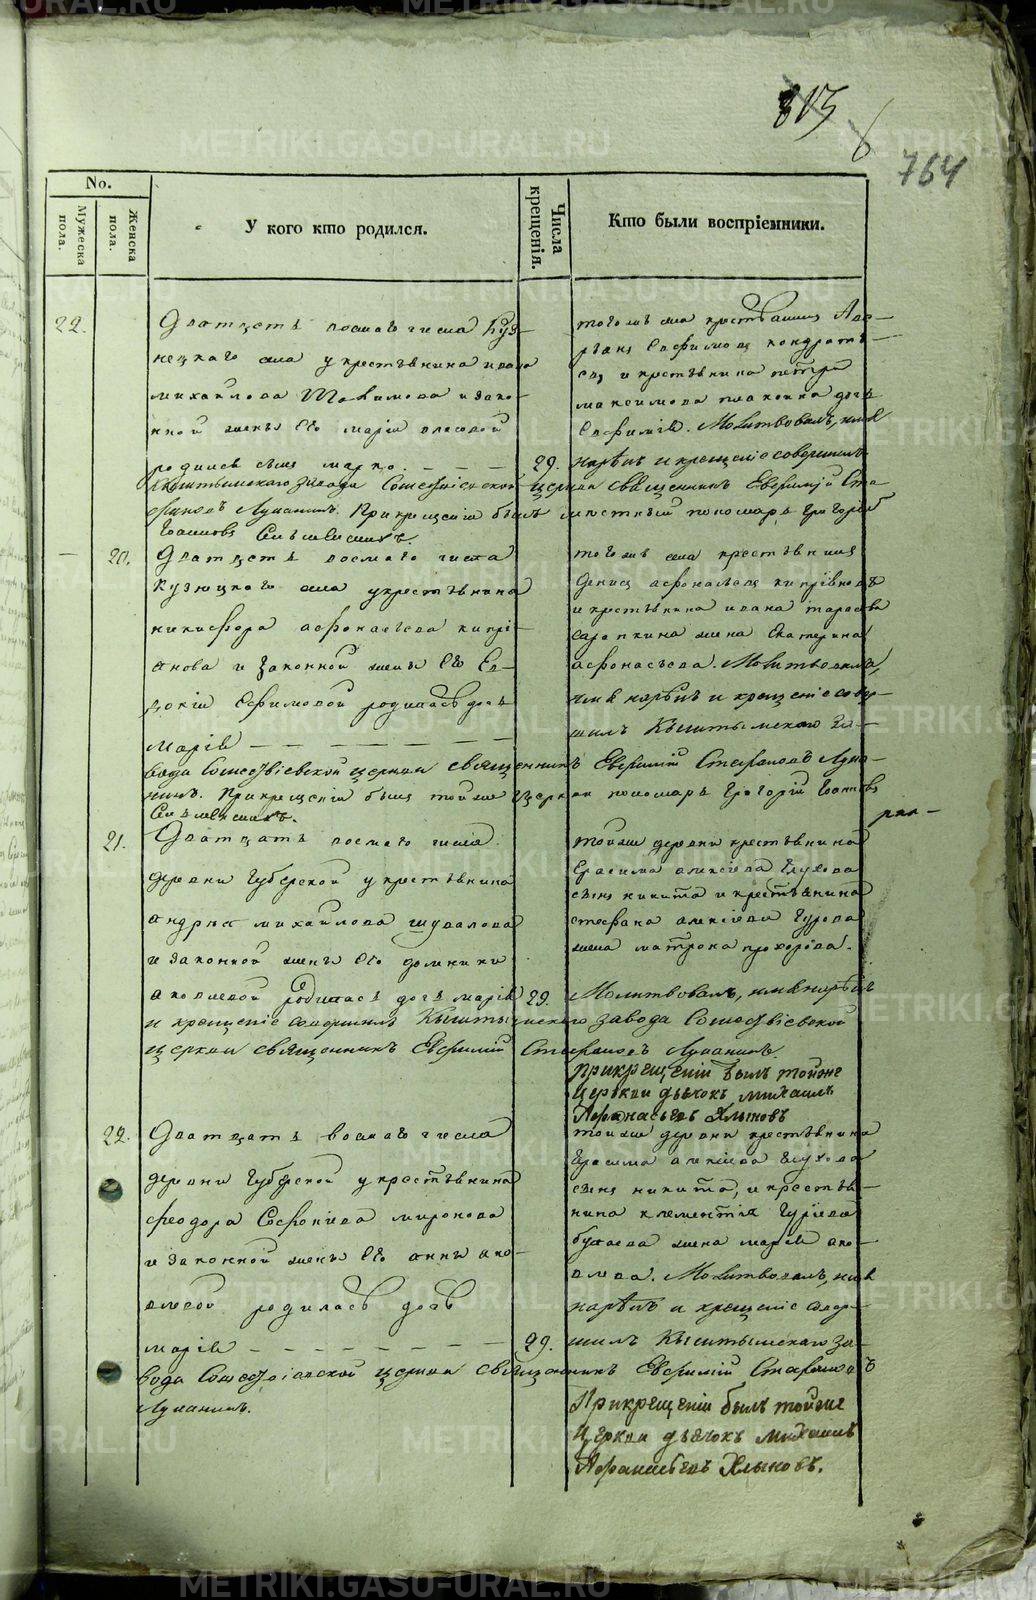 813
764
No.
Мужеска пола.
Женска пола.
У кого кто родился.
Числа крещенія.
Кто были воспріемники.
22.
Дватцеть восмаго числа Куз-
нецкаго села у крестьянина ивана
михайлова и зако-
нной жены его маріи власовой
родился сынъ марко. — — —
29.
тогожъ села крестьянинъ
Ефимовъ кондрать-
евъ и крестьянина петра
максимова дочь
Ефимія. Молитвовалъ, имя
нарѣкъ и крещеніе совершилъ
Кыштымскаго завода Сошествіевской церкви священникъ Евфимій Сте-
фановъ Луканинъ. При крещеніи былъ мѣстный пономарь Григорій
Іоанновъ
20.
Дватцеть восмаго числа
кузнецкаго села у крестьянина
никифора афонасьева кипрі-
янова и законной жены его Ев-
докіи Ефимовой родилась дочь
марія — — — — — —
тогожъ села крестьянинъ
денисъ афонасьевъ кипріяновъ
и крестьянина ивана тарасова
сарапкина жена Екатерина
афонасьева. Молитвовалъ,
имя нарѣкъ и крещеніе совер-
шилъ Кыштымскаго за-
вода Сошествіевской церкви священникъ Евфимій Стефановъ Лука-
нинъ. При крещеніи былъ тойже церкви пономарь Григорій Іоанновъ
21.
Дватцать восмаго числа
деревни Губерской у крестьянина
андрея михайлова шувалова
и законной жены его домники
яковлевой родилась дочь марія
29.
тойже деревни крестьянина
Герасима алексіева Глухова
сынъ никита и крестьянина
стефана алексіева Гурова
жена матрона прохорова.
Молитвовалъ, имя нарѣкъ
и крещеніе совершилъ Кыштымскаго завода Сошествіевской
церкви священникъ Евфимій Стефановъ Луканинъ.
При крещеніи былъ тойже
церкви дьячокъ михаилъ
Афанасьевъ Хлыновъ
22.
Дватцать восмаго числа
деревни Губерской у крестьянина
феодора Софоніева миронова
и законной жены его анны яко-
влевой родилась дочь
марія — — — — — —
29.
тойже деревни крестьянина
Герасима алексіева Глухова
сынъ никита, и крестья-
нина клементія Гуріева
жена марія яко-
влева. Молитвовалъ, имя
нарѣкъ и крещеніе совер-
шилъ Кыштымскаго за-
вода Сошествіевской церкви священникъ Евфимій Стефановъ
Луканинъ.
При крещеніи былъ тойже
церкви дьячокъ михаилъ
Афанасьевъ Хлыновъ.
METRIKI.GASO-URAL.RU